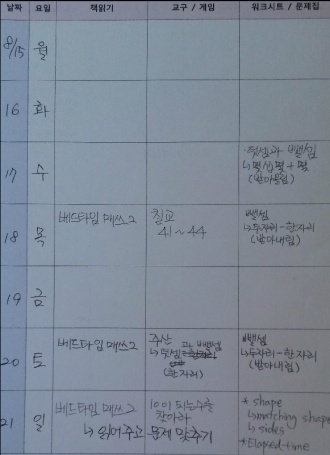 날짜 요일 책읽기 교구 / 게임 워크시트 / 문제집
8/15 월
16 화
17 수
·덧셈과 뺄셈
↳몇십몇 + 몇
(받아올림)
18 목
베드타임 매쓰 2
칠교
41 ~ 44
뺄셈
↳두자리 - 한자리
(받아내림)
19 금
20 토
베드타임 매쓰 2
주산
↳덧셈과 뺄셈
(한자리)
뺄셈
↳두자리 - 한자리
(받아내림)
21 일
베드타임 매쓰 2
↳ 읽어주고 문제 맞추기
10이 되는 수를
찾아라
* shape
↳matching shape
↳ sides
*Elapsed-time